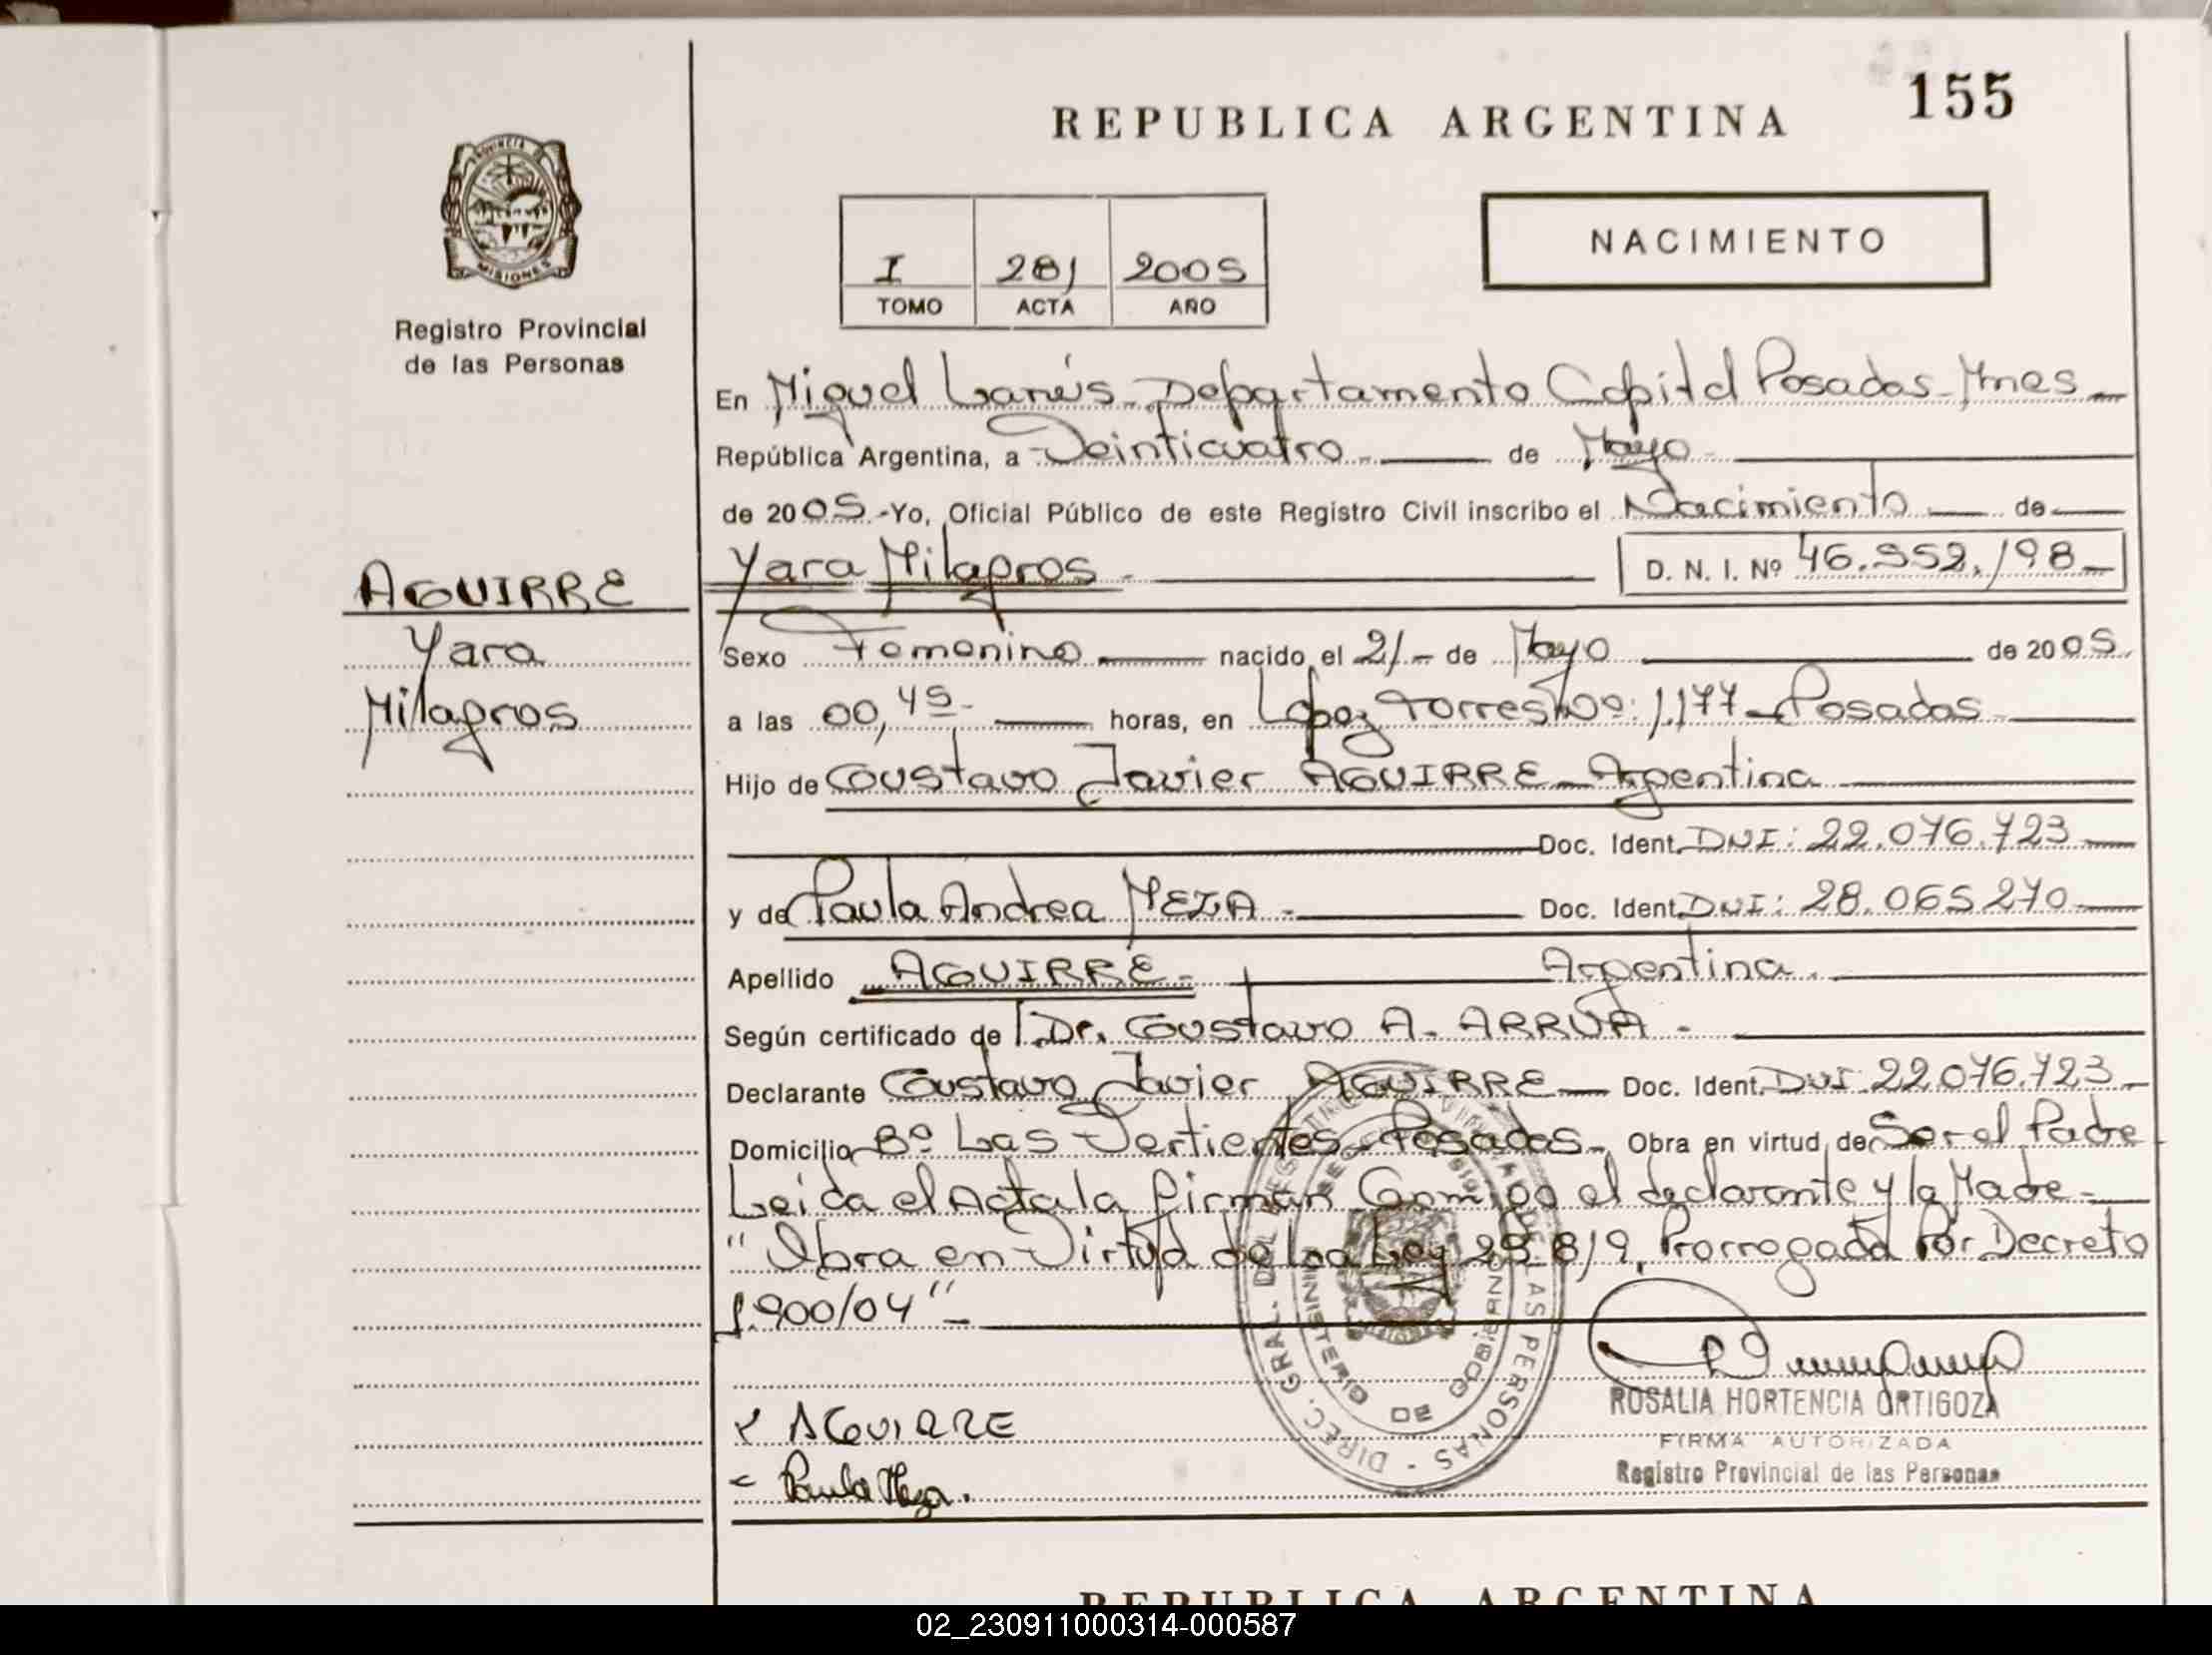 REPUBLICA ARGENTINA
155
PROVINCIA DE
MISIONES
Registro Provincial
de las Personas
I 281 2005
TOMO ACTA AÑO
NACIMIENTO
En Miguel Lanús-Departamento Capital Posadas-Mnes-
República Argentina, a Veinticuatro de Mayo
de 2005.-Yo, Oficial Público de este Registro Civil inscribo el Nacimiento de
AGUIRRE
Yara Milagros
D. N. I. Nº 46.552.198-
Yara
Milagros
Sexo Femenino nacido el 21- de Mayo de 2005.
a las 00,45- horas, en López Torres Nº: 1.177-Posadas
Hijo de Gustavo Javier AGUIRRE-Argentina
Doc. Ident. DNI: 22.076.723
y de Paula Andrea MEZA- Doc. Ident. DNI: 28.065270
Apellido AGUIRRE- Argentina.
Según certificado de Dr. Gustavo A. ARRUA-
Declarante Gustavo Javier AGUIRRE- Doc. Ident. DNI 22.076.723
Domicilio Bº Las Vertientes-Posadas- Obra en virtud de Ser el Padre
Leida el Acta la firman Conmigo el declarante y la Madre-
"Obra en Virtud de la Ley 25.819, Prorrogada Por Decreto
1.900/04"-
AGUIRRE
Paula Meza.
DIREC. GRAL. DEL REGISTRO PROVINCIAL DE LAS PERSONAS
MINISTERIO DE GOBIERNO
ROSALIA HORTENCIA ORTIGOZA
FIRMA AUTORIZADA
Registro Provincial de las Personas
REPUBLICA ARGENTINA
02_230911000314-000587